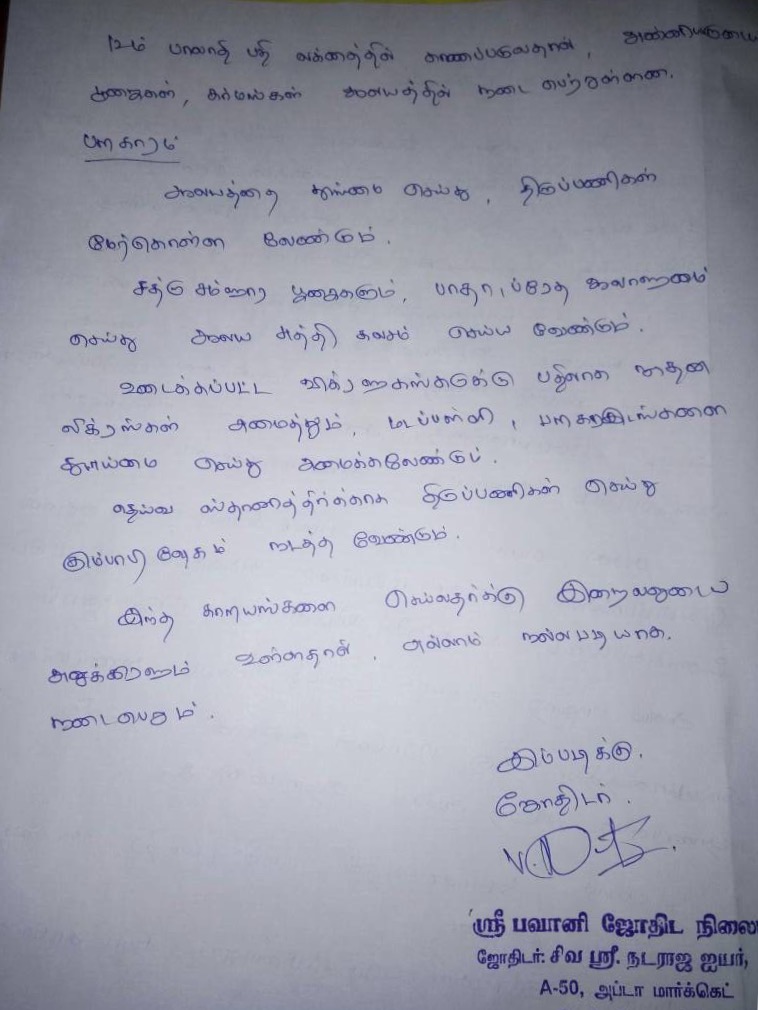 12ம் பாவாதி பதி லக்னத்தில் காணப்படுவதால், அன்னியருடைய
பூஜைகள், கர்மங்கள் ஆலயத்தில் நடை பெற்றுள்ளன.
பரிகாரம்
ஆலயத்தை தூய்மை செய்து, திருப்பணிகள்
மேற்கொள்ள வேண்டும்.
சத்ரு சம்ஹார பூஜைகளும், பாதா, ப்ரேத
செய்து ஆலய சுத்தி கலசம் செய்ய வேண்டும்.
உடைக்கப்பட்ட விக்ரஹகங்களுக்கு பதிலாக நூதன
விக்ரங்கள் அமைத்தும், மடப்பள்ளி,
தூய்மை செய்து அமைக்கவேண்டும்.
திருப்பணிகள் செய்து
கும்பாபிஷேகம் நடத்த வேண்டும்.
இந்த காரியங்களை செய்வதற்க்கு இறைவனுடைய
அனுக்கிரஹம் உள்ளதால், எல்லாம் நல்லபடியாக
நடைபெறும்.
இப்படிக்கு,
ஜோதிடர்.
ஸ்ரீ பவானி ஜோதிட நிலை
ஜோதிடர்: சிவ ஸ்ரீ. நடராஜ ஐயர்,
A-50, அப்டா மார்க்கெட்